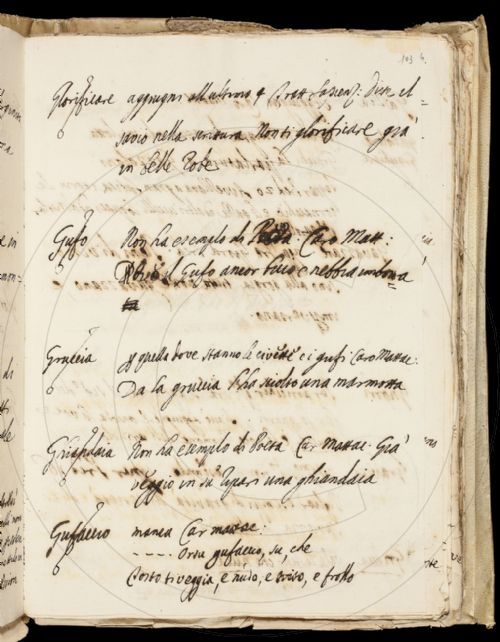 103
Glorificare aggiugni all'ultimo § Tratt. Sapienz: dice il
savio nella scrittura Non ti glorificare già
in belle robe
Gufo Non ha esempio di Poeta Caro Matt:
il Gufo ancor buio e nebbia
Gruccia quella dove stanno le civette e i gufi Caro Mattac:
Da la gruccia ha sciolto una marmotta
Ghiandaia Non ha esempio di Poeta Car Mattac: Già
veggio in su ripari una ghiandaia
Gufaccio manca Car mattac:
----- Orsù gufaccio, su, che
Tosto ti veggia, e nudo, e trito, e frollo